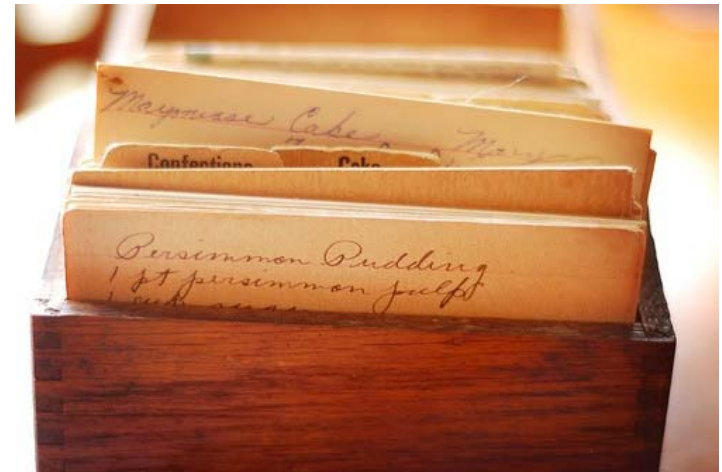 Mayonnaise Cake
Confections Cake
Persimmon Pudding
1 pt persimmon pulp
1 cup sugar